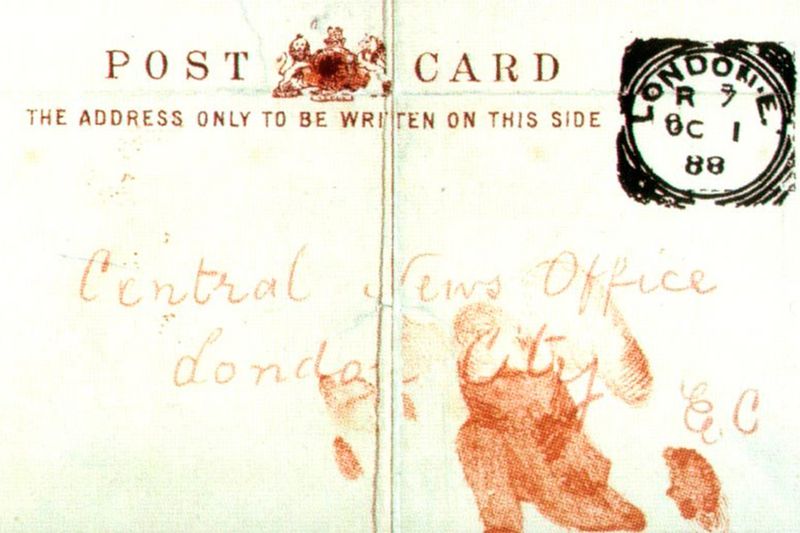 POST CARD
THE ADDRESS ONLY TO BE WRITTEN ON THIS SIDE
LONDON.E.
R 7
OC 1
88
Central News Office
London City
E.C